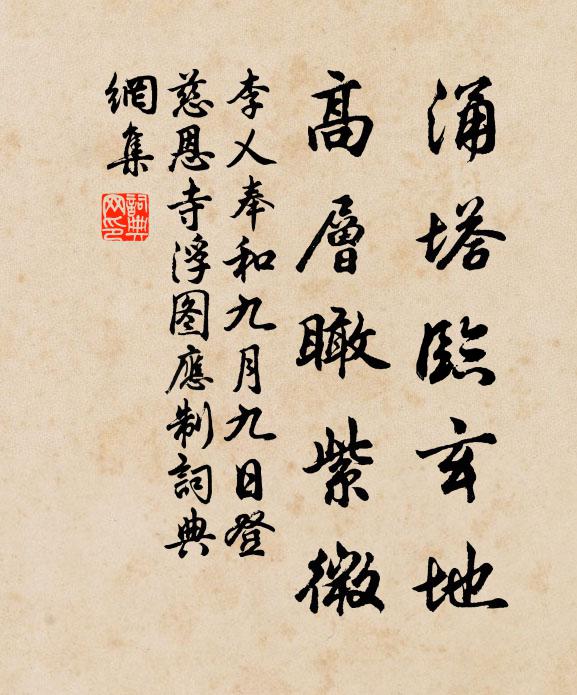 涌塔臨玄地
高層瞰紫微
李乂奉和九月九日登
慈恩寺浮图應制詞典
網集
詞典網印